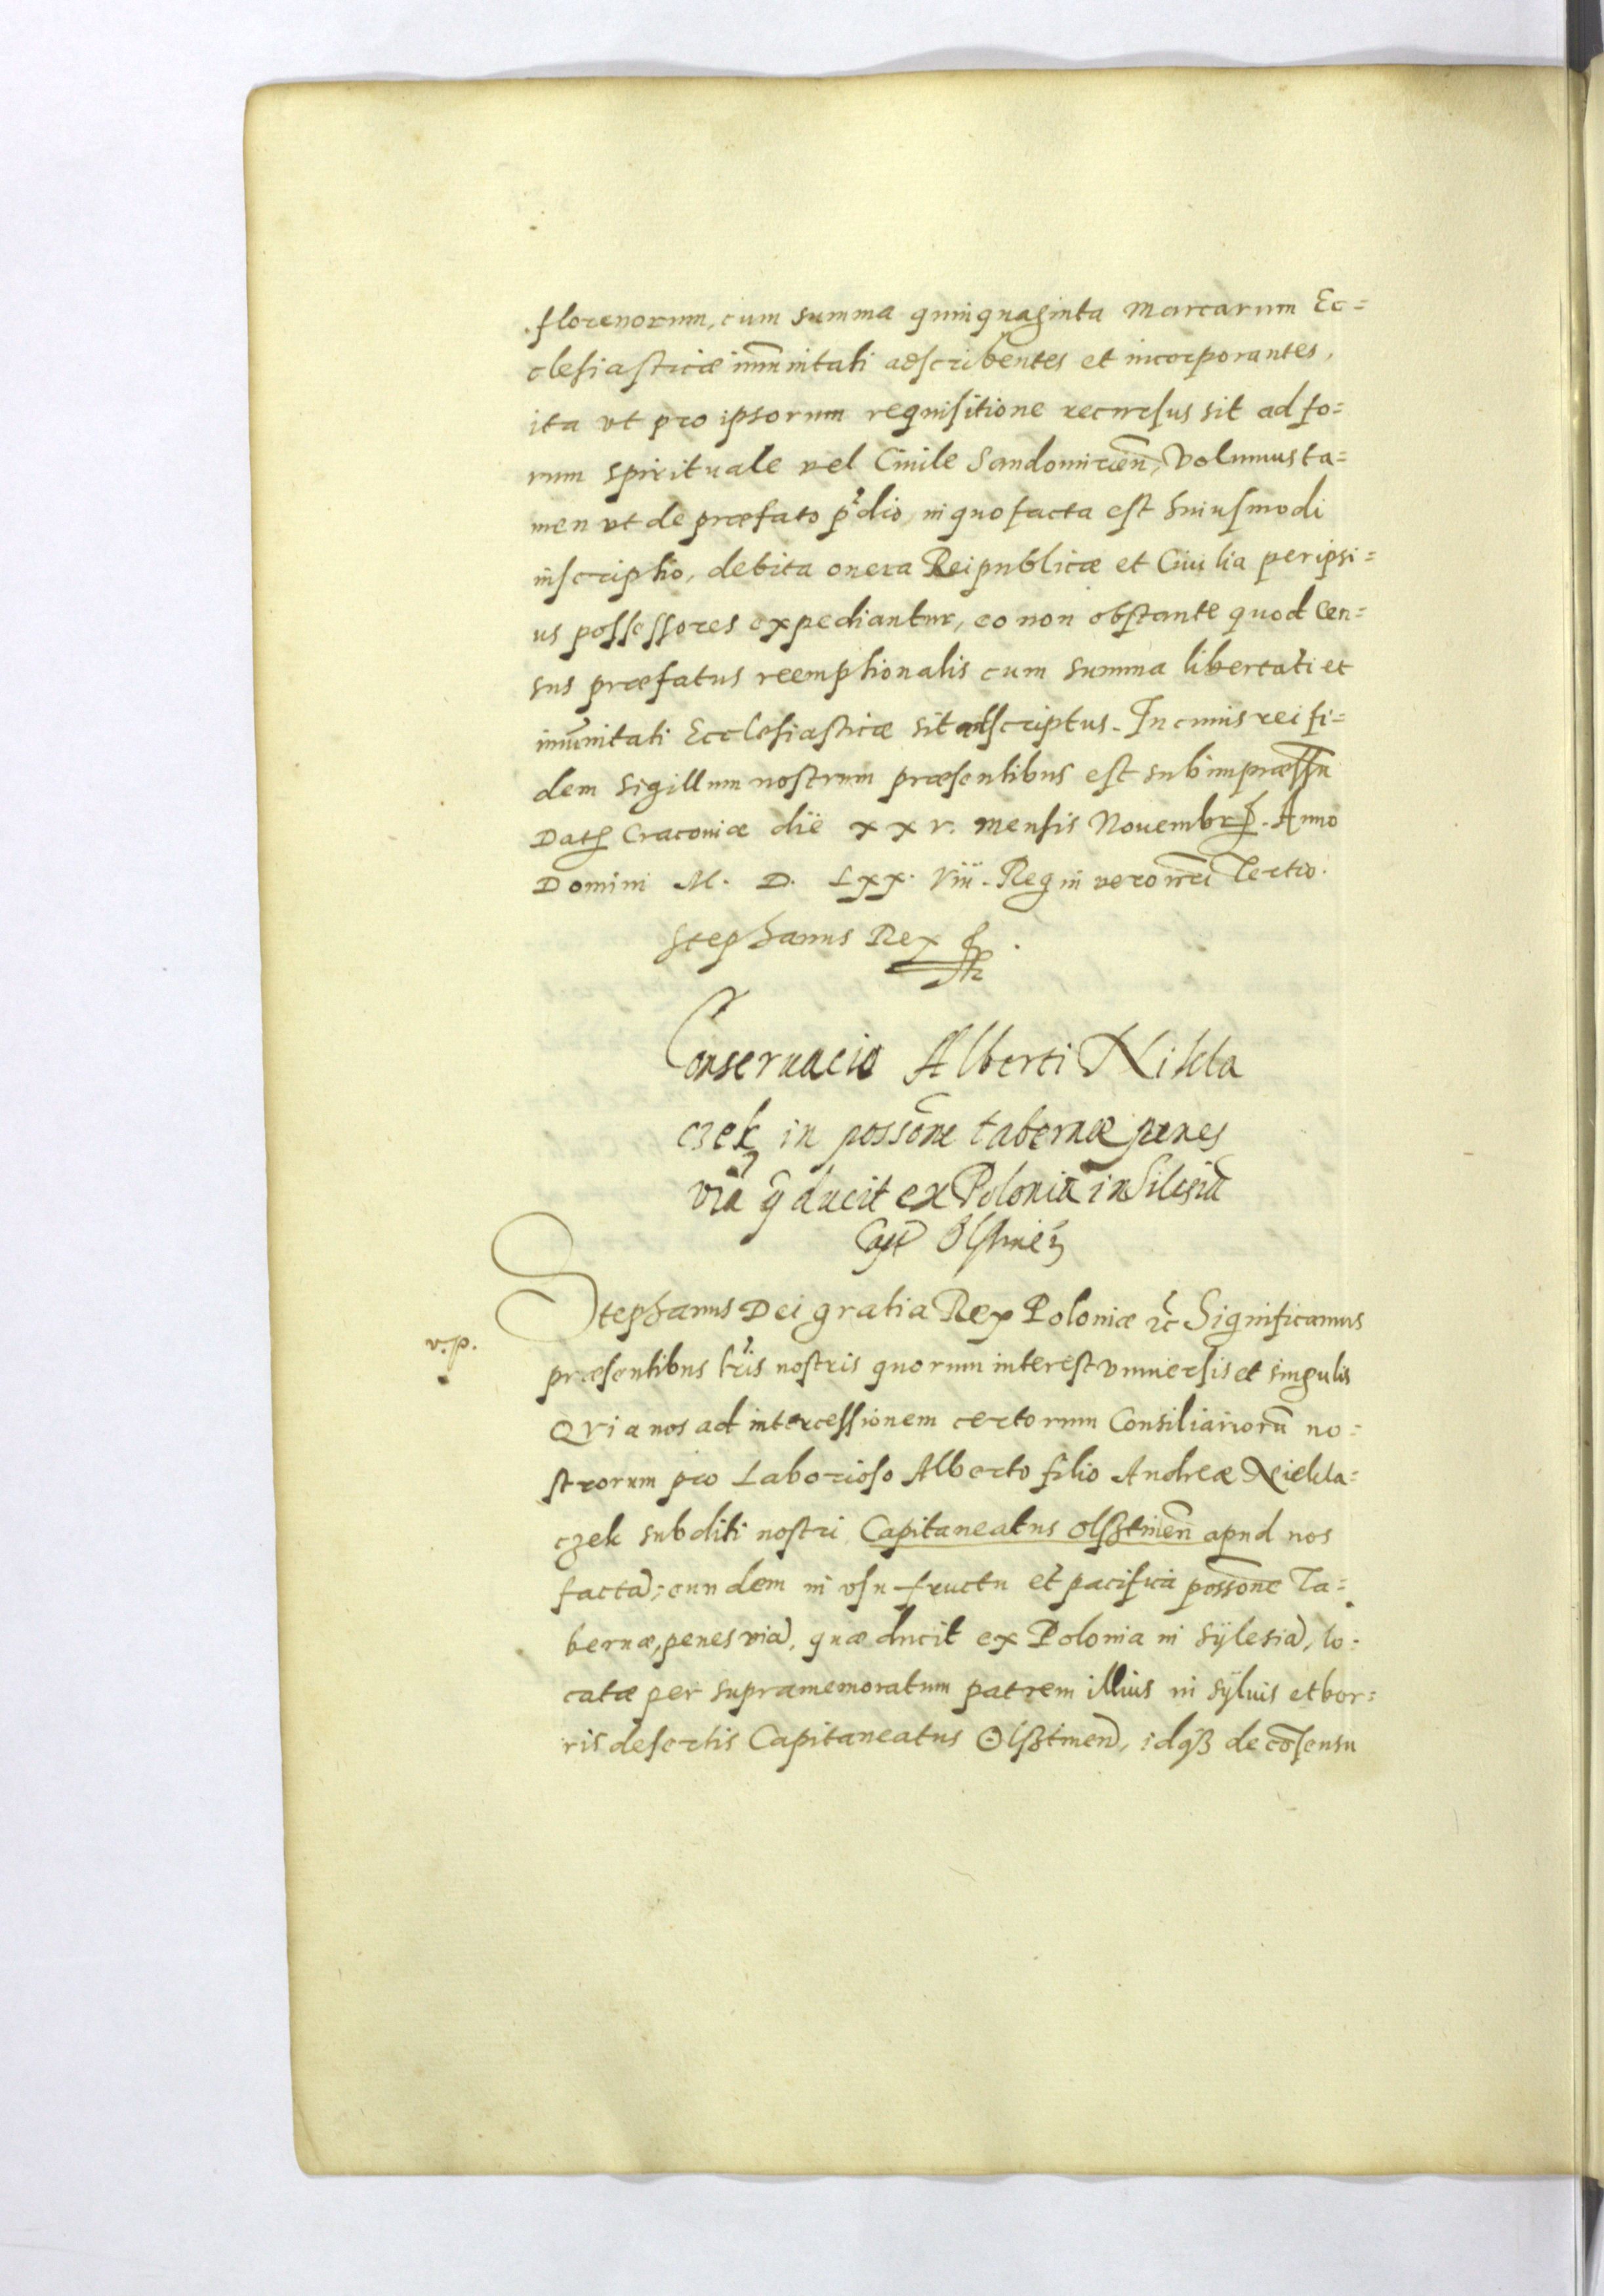 florenorum, cum summa quinquaginta marcarum Ec=
clesiasticæ im̅unitati adscribentes et incorporantes,
ita vt pro ipsorum requisitione recursus sit ad fo=
rum spirituale vel Ciuile Sandomirien̅, Volumus ta=
men vt de præfato p̓dio, in quo facta est huiusmodi
inscriptio, debita onera Reipublicæ et Ciuilia per ipsi=
us possessores expediantur, eo non obstante quod Cen=
sus præfatus reemptionalis cum summa libertati et
imu̅nitati Ecclesiasticæ sit adscriptus. In cuius rei fi=
dem sigillum nostrum præsentibus est subimpræssu̅
Datꝭ Cracouiæ dië xxv. mensis Nouembrꝭ. Anno
Domini M. D. Lxx. viii. Regni vero nr̅i Tertio.
Stephanus Rex
Conseruacio Alberti Nikla
czek in posso̅ne tabernæ penes
via̅ q̅ ducit ex Polonia in Silesia̅
Capt̅ Olstine̅
Stephanus Dei gratia Rex Poloniæ etc̅ Significamus
præsentibus lr̅is nostris quorum interest vniuersis et singulis
QVia nos ad intercessionem certorum Consiliarioru̅ no=
strorum pro Laborioso Alberto filio Andreæ Niekla=
czek subditi nostri Capitaneatus Olsztinen̅ apud nos
facta̅; eundem in vsufructu et pacifica posso̅ne Ta=
bernæ, penes via̅, quæ ducit ex Polonia in Sÿlesia̅, lo=
catæ per supramemoratum patrem illius in sÿluis et bor=
ris desertis Capitaneatus Olsztinen̅, idqꝫ de co̅sensu